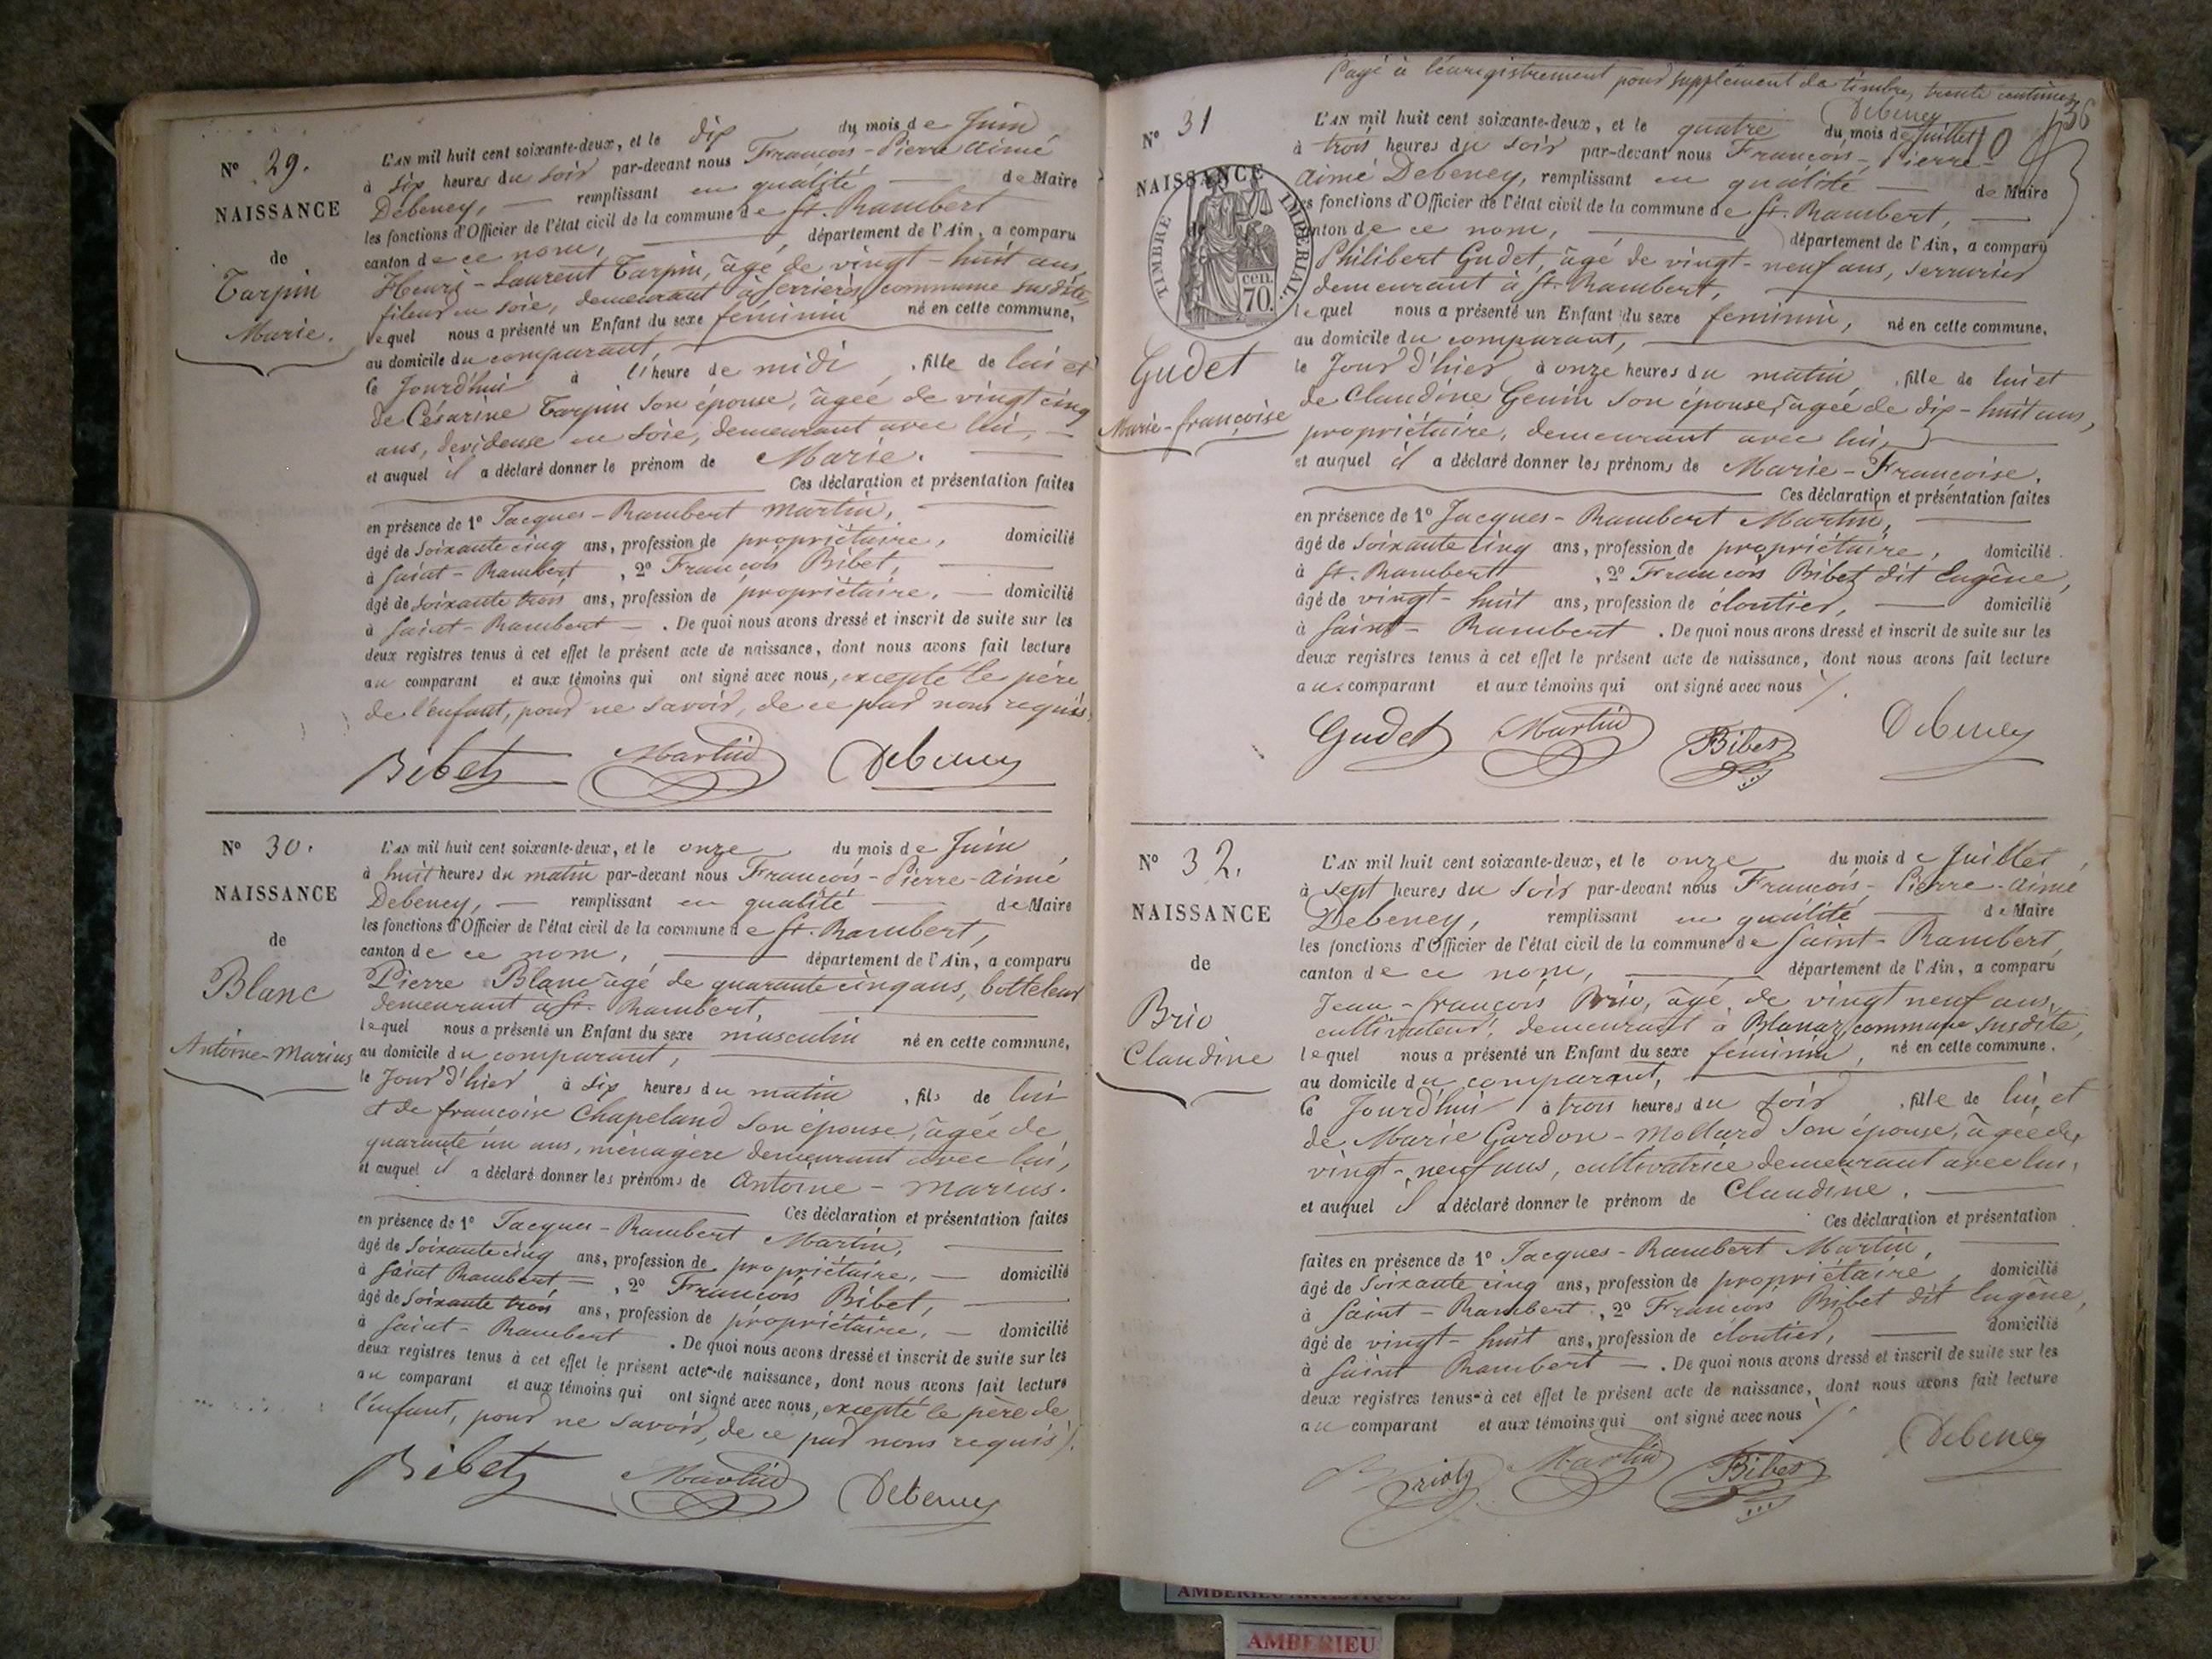 N° 29.
NAISSANCE
de
Tarpin
Marie.
L'AN mil huit cent soixante-deux, et le dix du mois de Juin
à six heures du soir par-devant nous François-Pierre Aimé
Debeney, remplissant en qualité de Maire
les fonctions d'Officier de l'état civil de la commune de St. Rambert
canton de ce nom, département de l'Ain, a comparu
Henri-Laurent Tarpin, âgé de vingt-huit ans,
fileur en soie, demeurant à Serrières commune susdite,
lequel nous a présenté un Enfant du sexe féminin né en cette commune,
au domicile du comparant,
le Jourd'hui à l'heure de midi, fille de lui et
de Césarine Tarpin son épouse, âgée de vingt cinq
ans, devideuse en soie, demeurant avec lui,
et auquel il a déclaré donner le prénom de Marie.
Ces déclaration et présentation faites
en présence de 1° Jacques-Rambert Martin,
âgé de soixante cinq ans, profession de propriétaire, domicilié
à Saint-Rambert, 2° François Bibet,
âgé de soixante trois ans, profession de propriétaire, domicilié
à Saint-Rambert. De quoi nous avons dressé et inscrit de suite sur les
deux registres tenus à cet effet le présent acte de naissance, dont nous avons fait lecture
au comparant et aux témoins qui ont signé avec nous, excepté le père
de l'enfant, pour ne savoir, de ce par nous requis.
Bibet Martin Debeney
N° 30.
NAISSANCE
de
Blanc
Antoine-Marius
L'AN mil huit cent soixante-deux, et le onze du mois de Juin,
à huit heures du matin par-devant nous François-Pierre-Aimé
Debeney, remplissant en qualité de Maire
les fonctions d'Officier de l'état civil de la commune de St. Rambert,
canton de ce nom, département de l'Ain, a comparu
Pierre Blanc âgé de quarante cinq ans, botteleur
demeurant à St. Rambert,
lequel nous a présenté un Enfant du sexe masculin né en cette commune,
au domicile du comparant,
le Jour d'hier à six heures du matin, fils de lui
et de françoise Chapeland son épouse, âgée de
quarante un ans, ménagère demeurant avec lui,
et auquel il a déclaré donner les prénoms de Antoine-Marius.
Ces déclaration et présentation faites
en présence de 1° Jacques-Rambert Martin,
âgé de soixante cinq ans, profession de propriétaire, domicilié
à Saint Rambert, 2° François Bibet,
âgé de soixante trois ans, profession de propriétaire, domicilié
à Saint-Rambert. De quoi nous avons dressé et inscrit de suite sur les
deux registres tenus à cet effet le présent acte de naissance, dont nous avons fait lecture
au comparant et aux témoins qui ont signé avec nous, excepté le père de
l'enfant, pour ne savoir, de ce par nous requis.
Bibet Martin Debeney
Payé à l'enregistrement pour supplément de timbre, trente centimes
Debeney
N° 31
NAISSANCE
TIMBRE IMPÉRIAL.
cen.
70.
Gudet
Marie-françoise
L'AN mil huit cent soixante-deux, et le quatre du mois de Juillet
à trois heures du soir par-devant nous François-Pierre-
Aimé Debeney, remplissant en qualité de Maire
les fonctions d'Officier de l'état civil de la commune de St. Rambert,
canton de ce nom, département de l'Ain, a comparu
Philibert Gudet, âgé de vingt-neuf ans, serrurier
demeurant à St. Rambert,
lequel nous a présenté un Enfant du sexe féminin, né en cette commune,
au domicile du comparant,
le Jour d'hier à onze heures du matin, fille de lui et
de Claudine Genin son épouse, âgée de dix-huit ans,
propriétaire, demeurant avec lui,
et auquel il a déclaré donner les prénoms de Marie-Françoise.
Ces déclaration et présentation faites
en présence de 1° Jacques-Rambert Martin,
âgé de soixante cinq ans, profession de propriétaire, domicilié
à St. Rambert, 2° François Bibet dit Eugène,
âgé de vingt-huit ans, profession de cloutier, domicilié
à Saint-Rambert. De quoi nous avons dressé et inscrit de suite sur les
deux registres tenus à cet effet le présent acte de naissance, dont nous avons fait lecture
au comparant et aux témoins qui ont signé avec nous
Gudet Martin Bibet Debeney
N° 32.
NAISSANCE
de
Brio
Claudine
L'AN mil huit cent soixante-deux, et le onze du mois de Juillet,
à sept heures du soir par-devant nous François-Pierre-Aimé
Debeney, remplissant en qualité de Maire
les fonctions d'Officier de l'état civil de la commune de Saint-Rambert,
canton de ce nom, département de l'Ain, a comparu
Jean-françois Brio, âgé de vingt neuf ans,
cultivateur, demeurant à Blanaz commune susdite,
lequel nous a présenté un Enfant du sexe féminin, né en cette commune.
au domicile du comparant,
le Jourd'hui à trois heures du soir, fille de lui et
de Marie Gardon-Mollard son épouse, âgée de
vingt-neuf ans, cultivatrice demeurant avec lui,
et auquel il a déclaré donner le prénom de Claudine.
Ces déclaration et présentation
faites en présence de 1° Jacques-Rambert Martin,
âgé de soixante cinq ans, profession de propriétaire, domicilié
à Saint-Rambert, 2° François Bibet dit Eugène,
âgé de vingt-huit ans, profession de cloutier, domicilié
à Saint Rambert. De quoi nous avons dressé et inscrit de suite sur les
deux registres tenus à cet effet le présent acte de naissance, dont nous avons fait lecture
au comparant et aux témoins qui ont signé avec nous
Martin Bibet Debeney
AMBERIEU ARTISTIQUE
AMBERIEU